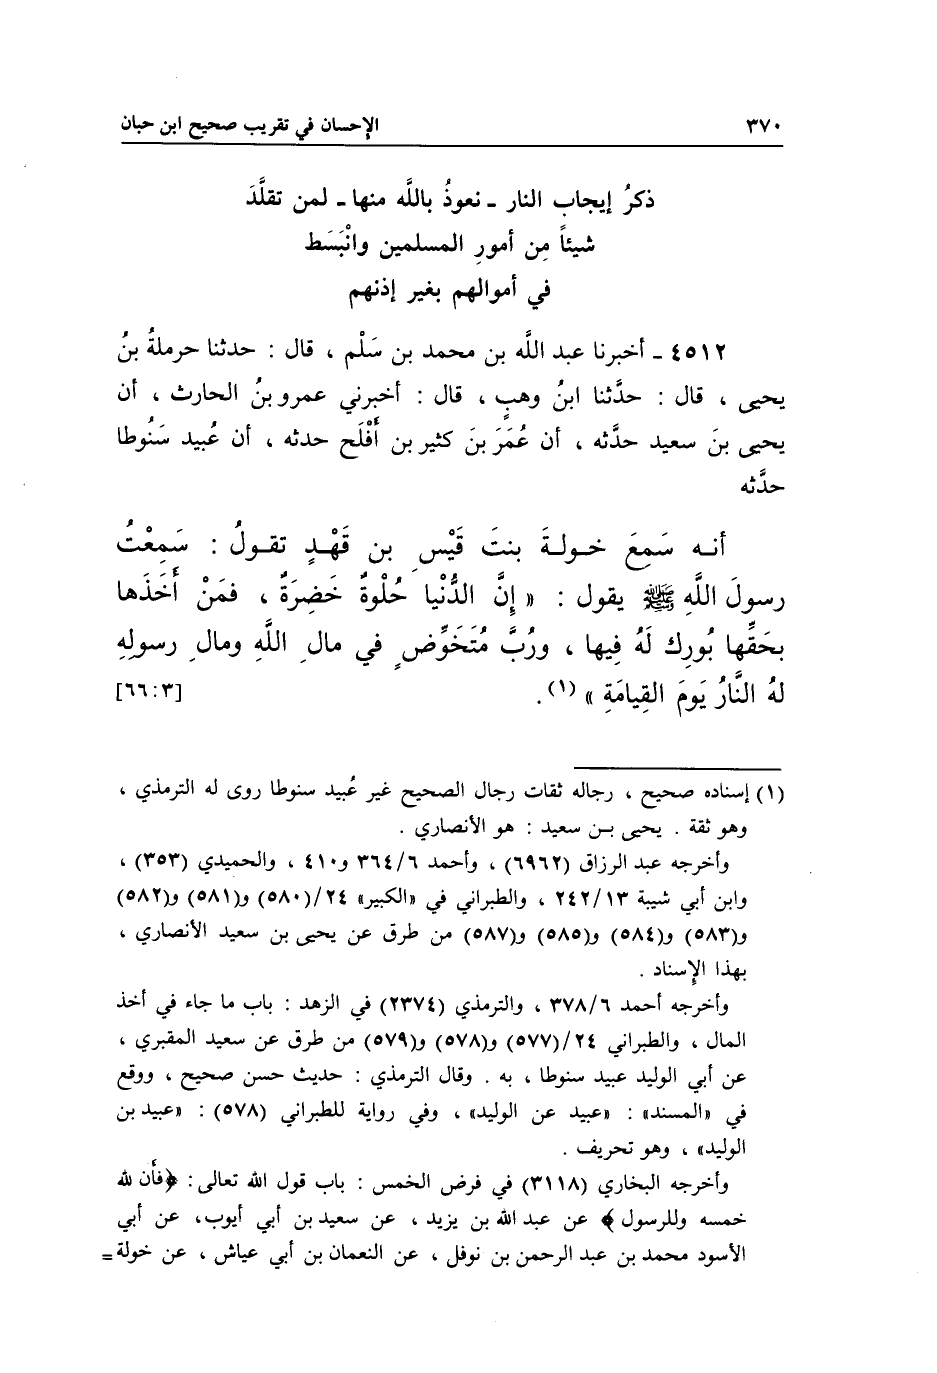 ٣٧٠ الإحسان في تقريب صحيح ابن حبان
ذكرُ إيجاب النار ـ نعوذُ باللَّه منها ـ لمن تقلَّدَ
شيئاً مِن أمورِ المسلمين وانْبَسَط
في أموالهم بغير إذنهم
٤٥١٢ ـ أخبرنا عبد اللَّه بن محمد بن سَلْم ، قال : حدثنا حرملةُ بنُ
يحيى ، قال : حدَّثنا ابنُ وهبٍ ، قال : أخبرني عمرو بنُ الحارث ، أن
يحيى بنَ سعيد حدَّثه ، أن عُمَرَ بنَ كثير بن أَفْلَح حدثه ، أن عُبيد سَنُوطا
حدَّثه
أنه سَمِعَ خولةَ بنتَ قَيْسِ بن قَهْدٍ تقولُ : سَمِعْتُ
رسولَ اللَّهِ ﷺ يقول : « إِنَّ الدُّنْيا حُلْوةٌ خَضِرَةٌ ، فمَنْ أَخَذَها
بحَقِّها بُورِك لَهُ فِيها ، ورُبَّ مُتَخَوِّضٍ في مالِ اللَّهِ ومالِ رسولِهِ
لهُ النَّارُ يَومَ القِيامَةِ » (١). [٣:٦٦]
(١) إسناده صحيح ، رجاله ثقات رجال الصحيح غير عُبيد سنوطا روى له الترمذي ،
وهو ثقة . يحيى بن سعيد : هو الأنصاري .
وأخرجه عبد الرزاق (٦٩٦٢) ، وأحمد ٣٦٤/٦ و٤١٠ ، والحميدي (٣٥٣) ،
وابن أبي شيبة ٢٤٢/١٣ ، والطبراني في «الكبير» ٢٤/(٥٨٠) و(٥٨١) و(٥٨٢)
و(٥٨٣) و(٥٨٤) و(٥٨٥) و(٥٨٧) من طرق عن يحيى بن سعيد الأنصاري ،
بهذا الإسناد .
وأخرجه أحمد ٣٧٨/٦ ، والترمذي (٢٣٧٤) في الزهد : باب ما جاء في أخذ
المال ، والطبراني ٢٤/(٥٧٧) و(٥٧٨) و(٥٧٩) من طرق عن سعيد المقبري ،
عن أبي الوليد عبيد سنوطا ، به . وقال الترمذي : حديث حسن صحيح ، ووقع
في «المسند» : «عبيد عن الوليد» ، وفي رواية للطبراني (٥٧٨) : «عبيد بن
الوليد» ، وهو تحريف .
وأخرجه البخاري (٣١١٨) في فرض الخمس : باب قول الله تعالى: ﴿فأن لله
خمسه وللرسول﴾ عن عبد الله بن يزيد ، عن سعيد بن أبي أيوب، عن أبي
الأسود محمد بن عبد الرحمن بن نوفل ، عن النعمان بن أبي عياش ، عن خولة =